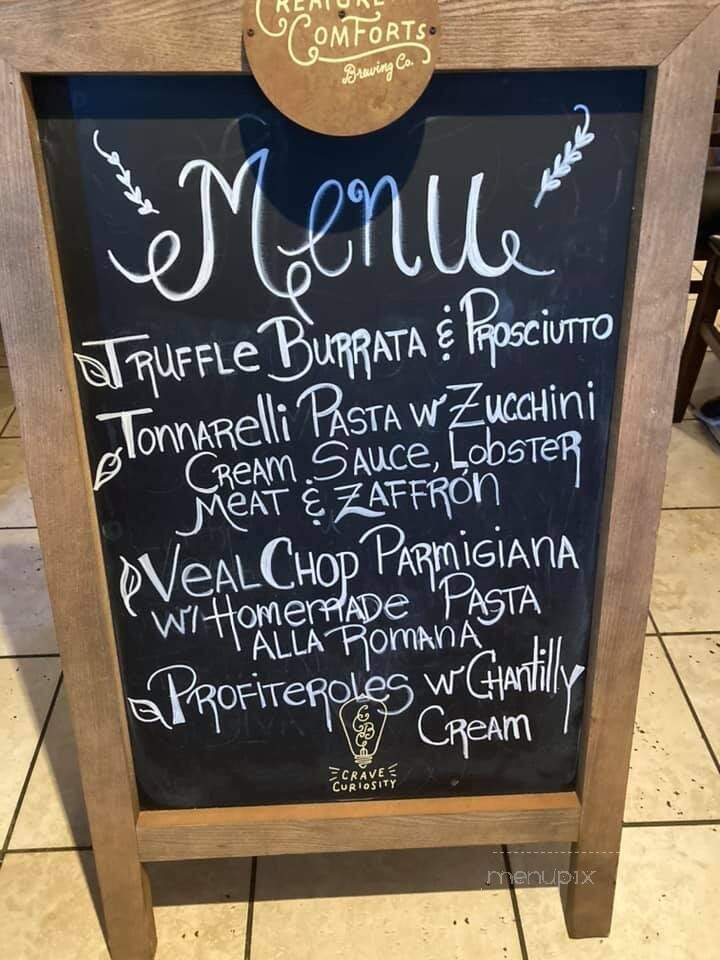 CREATURE
COMFORTS
Brewing Co.
Menu
TRUFFLE BURRATA & PROSCIUTTO
TONNARELLI PASTA W/ ZUCCHINI
CREAM SAUCE, LOBSTER
MEAT & ZAFFRÓN
VEAL CHOP PARMIGIANA
W/ HOMEMADE PASTA
ALLA ROMANA
PROFITEROLES W/ CHANTILLY
CREAM
CCBC
CRAVE
CURIOSITY
menupix